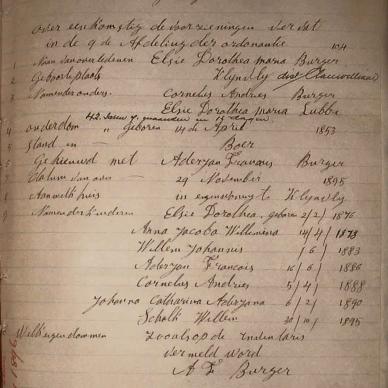 over een komstig de voorzieningen vervat
in de 9 de Afdeling der ordonantie 104
1 Naam van overledenen Elsie Dorothea maria Burger
2 Geboorte plaats Klynvly dist
3 Namen der ouders Cornelus Andries Burger
Elsie Dorothea maria Lubbe
42 Jaren 7 maanden in 15 dagen
4 ouderdom " Geboren 14 de April 1853
5 stand in Boer
6 Gehuwd met Aderjan Francois Burger
Datum van 29 November 1895
in eigen Klynvly
9 Namen der kinderen Elsie Dorothea geboren 2/2/ 1876
Anna Jacoba Willemina 14/4/ 1878
Willem Johannis /6/ 1883
Aderjan Francois 16/6/ 1886
Cornelus Andries 5/4/ 1888
Johanna Catharina Aderjana 6/2/ 1890
Schalk Willem 20/10/ 1895
Welk eigendommen zooals op de Indentaris
Vermeld word
A F Burger
1896